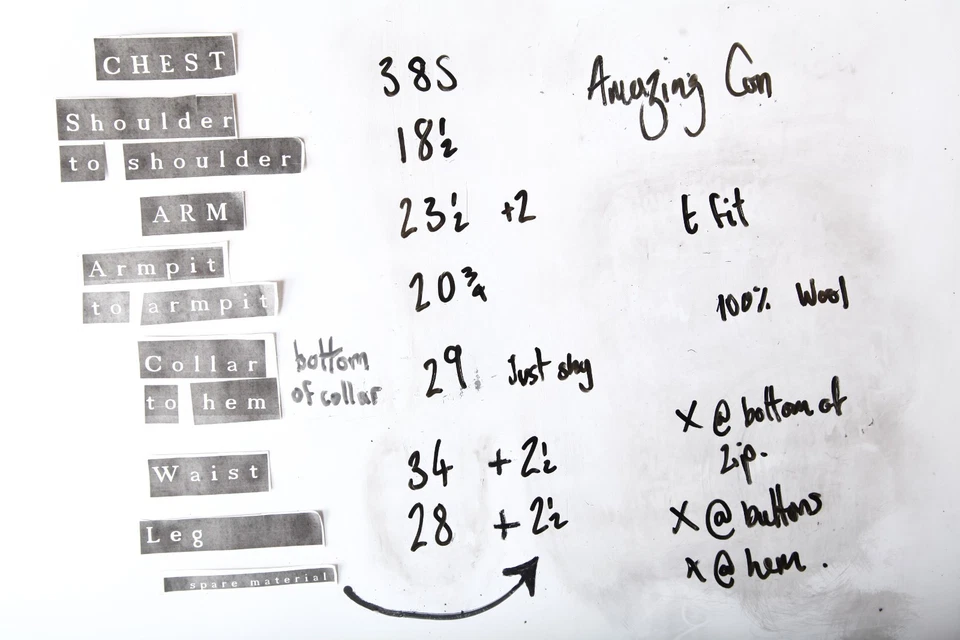 CHEST 38S Amazing Con
Shoulder
to shoulder 18½
ARM 23½ +2 t fit
Armpit
to armpit 20¾ 100% Wool
Collar bottom
to hem of collar 29 Just shy
X @ bottom of
Zip.
Waist 34 + 2½
Leg 28 + 2½ X @ buttons
spare material X @ hem.